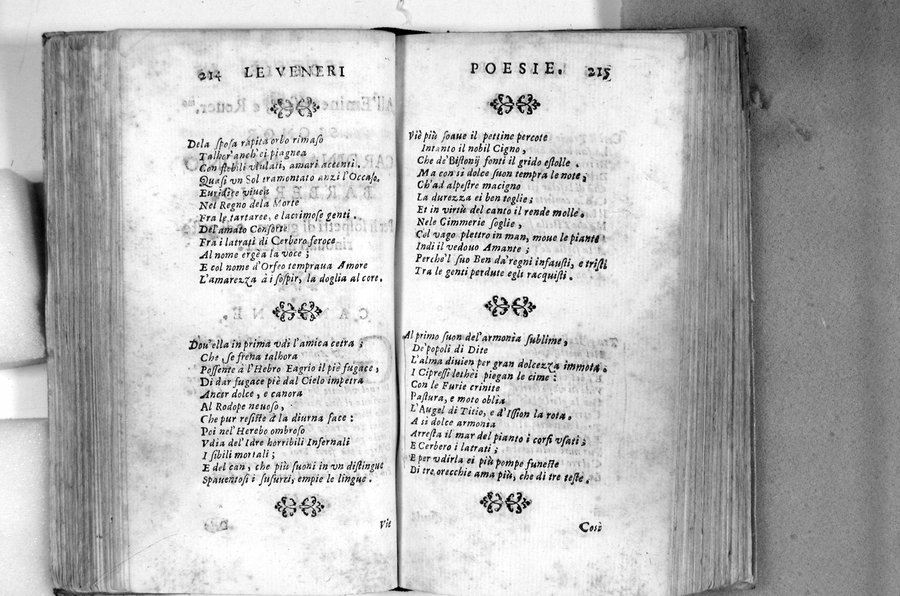 214 LE VENERI
Dela sposa rapita orbo rimaso
Talhor anch'ei piagnea
Con flebili vlulati, amari accenti.
Quasi vn Sol tramontato anzi l'Occaso,
Euridice viuea
Nel Regno dela Morte
Fra le tartaree, e lacrimose genti.
Del'amato Consorte
Fra i latrati di Cerbero feroce
Al nome ergea la voce;
E col nome d'Orfeo tempraua Amore
L'amarezza à i sospir, la doglia al core.
Dou'ella in prima vdì l'amica cetra;
Che se frena talhora
Possente à l'Hebro Eagrio il piè fugace,
Di dar fugace piè dal Cielo impetra
Ancor dolce, e canora
Al Rodope neuoso,
Che pur resiste à la diurna face:
Poi nel'Herebo ombroso
Vdia del'Idre horribili Infernali
I sibili mortali;
E del can, che più suoni in vn distingue
Spauentosi i susurri, empie le lingue.
Viè
POESIE. 215
Viè più soaue il pettine percote
Intanto il nobil Cigno,
Che de' Bistonij fonti il grido estolle.
Ma con sì dolce suon tempra le note,
Ch'ad alpestre macigno
La durezza ei ben toglie;
Et in virtù del canto il rende molle.
Nele Cimmerie soglie,
Col vago plettro in man, moue le piante
Indi il vedouo Amante;
Perche'l suo Ben da'regni infausti, e tristi
Tra le genti perdute egli racquisti.
Al primo suon del'armonia sublime,
De'popoli di Dite
L'alma diuien per gran dolcezza immota.
I Cipressi lethèi piegan le cime:
Con le Furie crinite
Pastura, e moto oblia
L'Augel di Titio, e d'Ission la rota.
A sì dolce armonia
Arresta il mar del pianto i corsi vsati;
E Cerbero i latrati;
E per vdirla ei più pompe funeste
Di tre orecchie ama più, che di tre teste.
Così